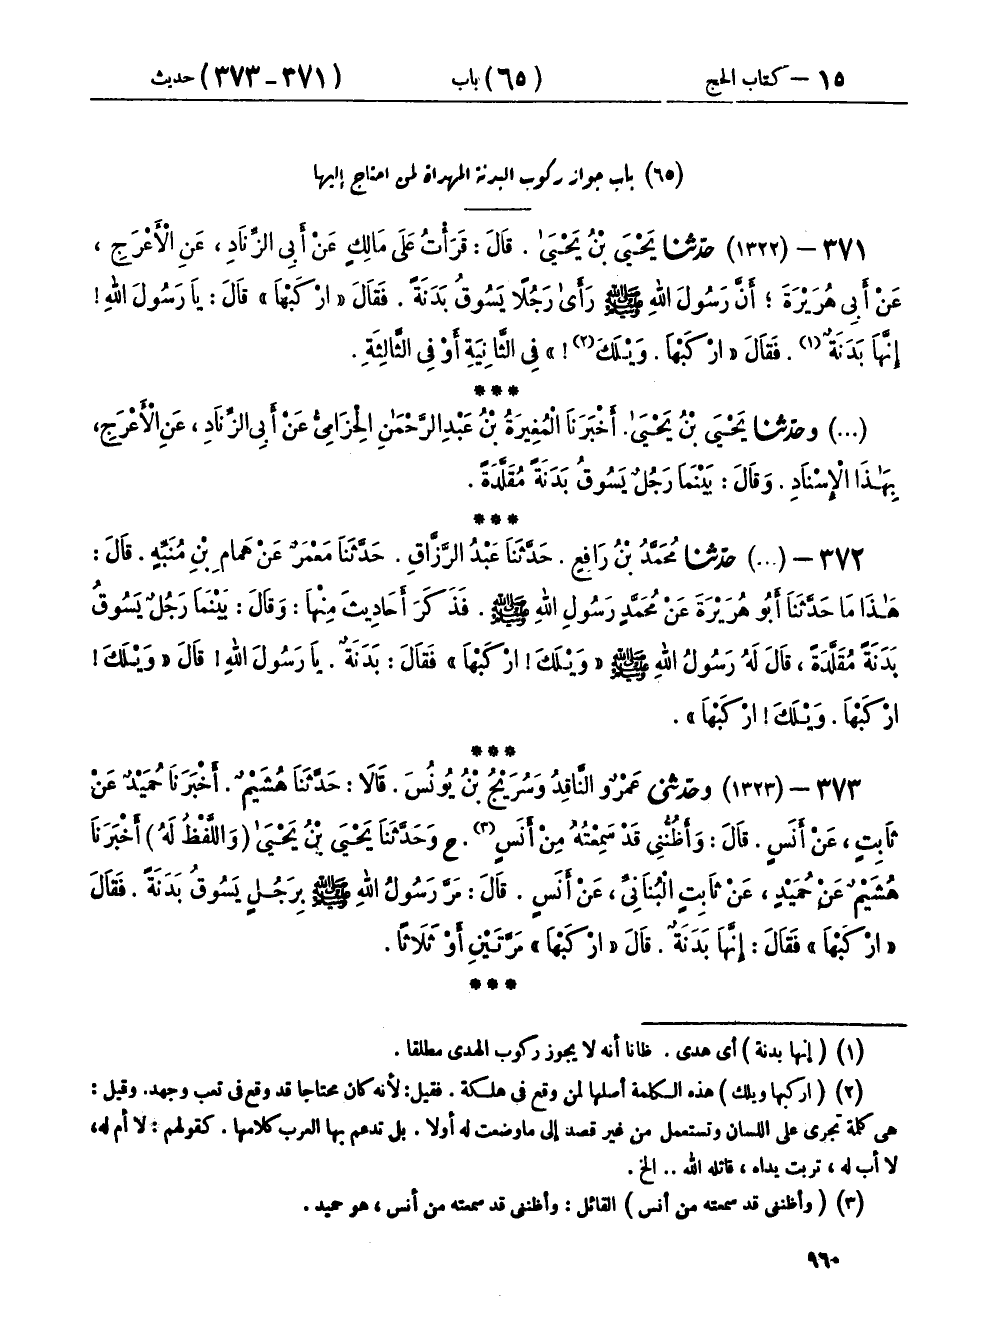 ١٥ – كتاب الحج (٦٥) باب (٣٧١ – ٣٧٣) حديث
(٦٥) باب جواز ركوب البدنة المهداة لمن احتاج إليها
٣٧١ – (١٣٢٢) حَدَّثَنَا يَحْيَى بْنُ يَحْيَىٰ . قَالَ : قَرَأْتُ عَلَى مَالِكٍ عَنْ أَبِى الزِّنَادِ ، عَنِ الْأَعْرَجِ ،
عَنْ أَبِى هُرَيْرَةَ ؛ أَنَّ رَسُولَ اللهِ ﷺ رَأَىٰ رَجُلًا يَسُوقُ بَدَنَةً . فَقَالَ « ارْكَبْهَا » قَالَ : يَا رَسُولَ اللهِ !
إِنَّهَا بَدَنَةٌ (١) . فَقَالَ « ارْكَبْهَا . وَيْلَكَ (٢) ! » فِى الثَّانِيَةِ أَوْ فِى الثَّالِثَةِ .
***
(...) وحَدَّثَنَا يَحْيَى بْنُ يَحْيَىٰ. أَخْبَرَنَا الْمُغِيرَةُ بْنُ عَبْدِ الرَّحْمَٰنِ الْحِزَامِىُّ عَنْ أَبِى الزِّنَادِ ، عَنِ الْأَعْرَجِ،
بِهَٰذَا الْإِسْنَادِ . وَقَالَ : بَيْنَمَا رَجُلٌ يَسُوقُ بَدَنَةً مُقَلَّدَةً .
***
٣٧٢ – (...) حَدَّثَنَا مُحَمَّدُ بْنُ رَافِعٍ . حَدَّثَنَا عَبْدُ الرَّزَّاقِ . حَدَّثَنَا مَعْمَرٌ عَنْ هَمَّامِ بْنِ مُنَبِّهٍ . قَالَ :
هَٰذَا مَا حَدَّثَنَا أَبُو هُرَيْرَةَ عَنْ مُحَمَّدٍ رَسُولِ اللهِ ﷺ . فَذَكَرَ أَحَادِيثَ مِنْهَا : وَقَالَ : بَيْنَمَا رَجُلٌ يَسُوقُ
بَدَنَةً مُقَلَّدَةً ، قَالَ لَهُ رَسُولُ اللهِ ﷺ « وَيْلَكَ ! ارْكَبْهَا » فَقَالَ : بَدَنَةٌ . يَا رَسُولَ اللهِ ! قَالَ « وَيْلَكَ !
ارْكَبْهَا . وَيْلَكَ ! ارْكَبْهَا » .
***
٣٧٣ – (١٣٢٣) وحَدَّثَنِى عَمْرٌو النَّاقِدُ وَسُرَيْجُ بْنُ يُونُسَ . قَالَا : حَدَّثَنَا هُشَيْمٌ . أَخْبَرَنَا حُمَيْدٌ عَنْ
ثَابِتٍ ، عَنْ أَنَسٍ . قَالَ : وَأَظُنُّنِى قَدْ سَمِعْتُهُ مِنْ أَنَسٍ (٣) . ح وَحَدَّثَنَا يَحْيَى بْنُ يَحْيَىٰ (وَاللَّفْظُ لَهُ) أَخْبَرَنَا
هُشَيْمٌ عَنْ حُمَيْدٍ ، عَنْ ثَابِتٍ الْبُنَانِىِّ ، عَنْ أَنَسٍ . قَالَ : مَرَّ رَسُولُ اللهِ ﷺ بِرَجُلٍ يَسُوقُ بَدَنَةً . فَقَالَ
« ارْكَبْهَا » فَقَالَ : إِنَّهَا بَدَنَةٌ . قَالَ « ارْكَبْهَا » مَرَّتَيْنِ أَوْ ثَلَاثًا .
***
(١) ( إنها بدنة ) أى هدى . ظانا أنه لا يجوز ركوب الهدى مطلقا .
(٢) ( اركبها ويلك ) هذه الكلمة أصلها لمن وقع فى هلكة . فقيل: لأنه كان محتاجا قد وقع فى تعب وجهد. وقيل :
هى كلمة تجرى على اللسان وتستعمل من غير قصد إلى ما وضعت له أولا . بل تدعم بها العرب كلامها . كقولهم : لا أم له،
لا أب له ، تربت يداه ، قاتله الله .. الخ .
(٣) ( وأظننى قد سمعته من أنس ) القائل : وأظننى قد سمعته من أنس ، هو حميد .
٩٦٠